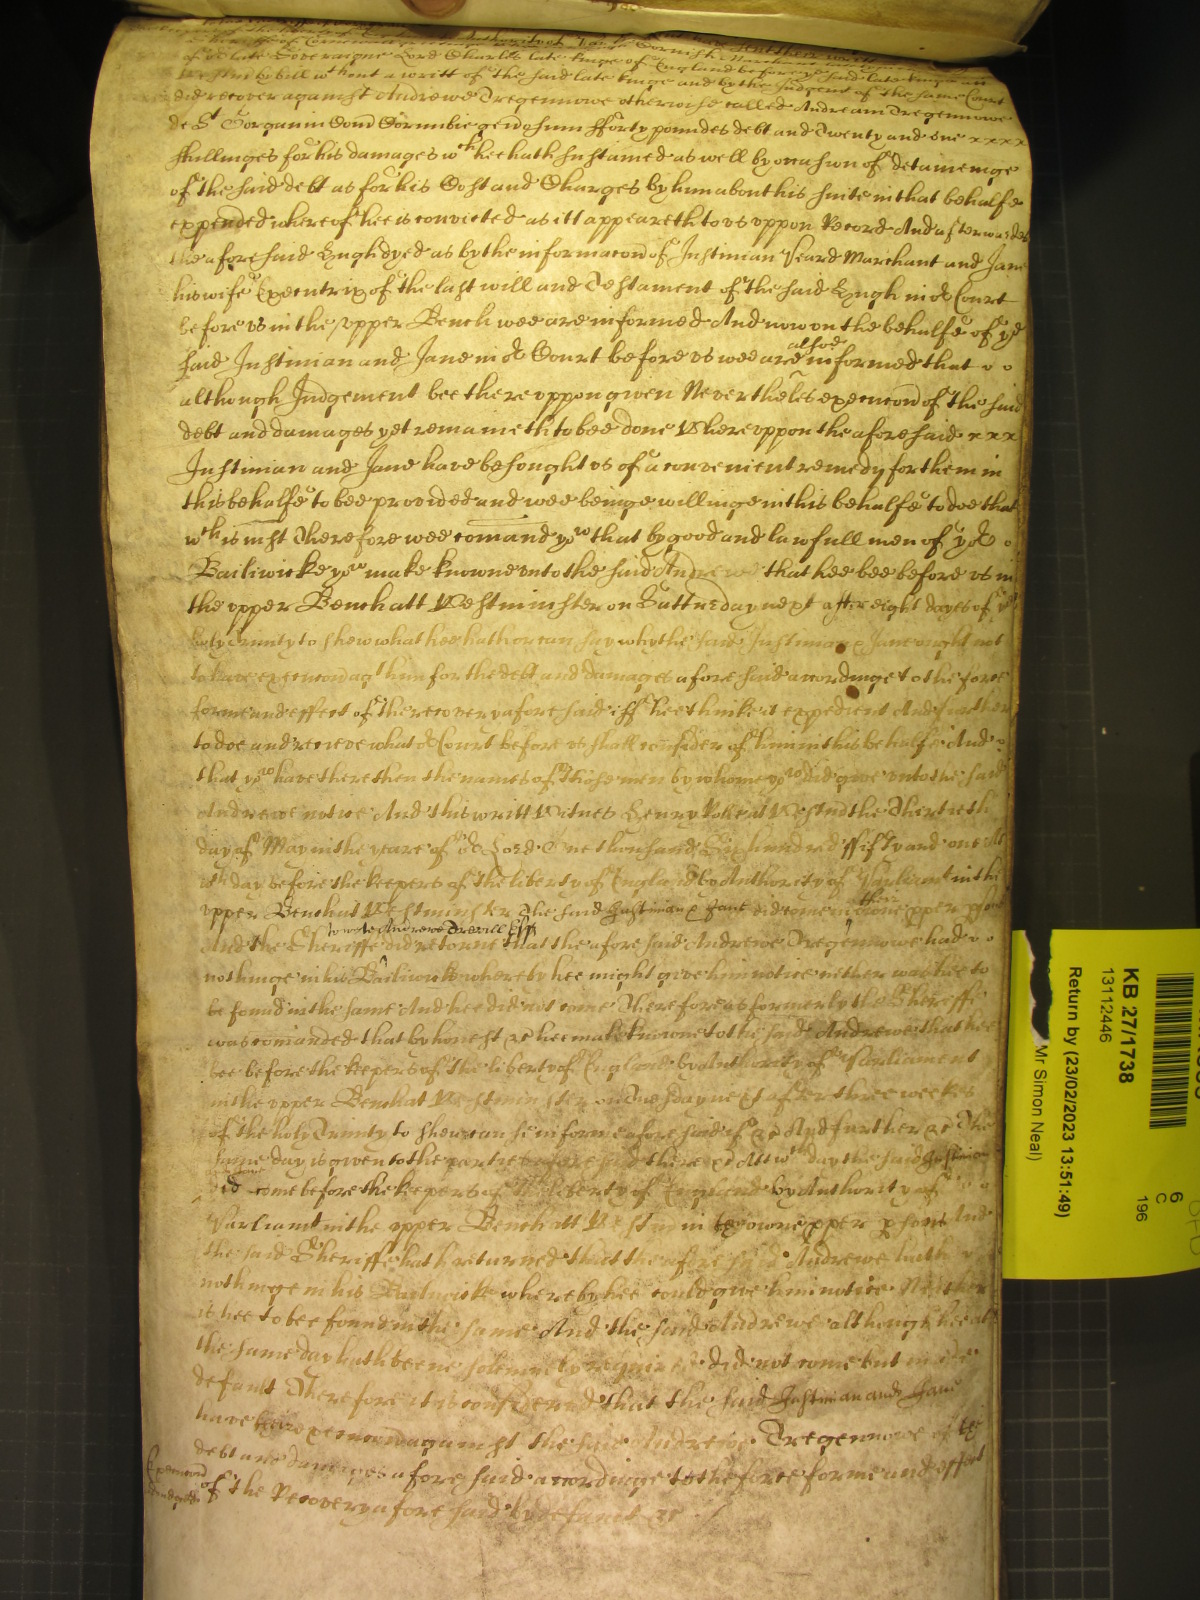 of o{r} late Soveraigne Lord Charles late kinge of England before y{e} said late kinge att
Westm{r} by bill w{th}out a writt of the said late kinge and by the Judgem{t} of the same Court
did recover against Andrewe Tregennowe otherwise called Andream Tregennowe
de S{t} Gorran in Com̄ Cornubie generosum fforty poundes debt and Twenty and one xxxx
shillinges for his damages w{ch} hee hath sustained as well by occasion of detaineinge
of the said debt as for his Cost and Charges by him about his suite in that behalfe
expended whereof hee is convicted as itt appeareth to us uppon Record And afterwardes
the aforesaid Hugh dyed as by the informacōn of Justinian Peard Marchant and Jane
his wife Executrix of the last will and Testament of the said Hugh in o{r} Court
before us in the upper Bench wee are informed And now on the behalfe of y{e}
said Justinian and Jane in o{r} Court before us wee are alsoe informed that o o
although Judgement bee thereuppon given Nevertheles execucōn of the said
debt and damages yet remaineth to bee done Whereuppon the aforesaid xxx
Justinian and Jane have besought us of a convenient remedy for them in
this behalfe to bee provided and wee beinge willinge in this behalfe to doe that
w{ch} is iust Therefore wee comand yo{u} that by good and lawfull men of yo{r} o
Bailiwicke yo{u} make knowne unto the said Andrewe that hee bee before us in
the upper Bench att Westminster on Satturday next after eight dayes of y{e}
holy Trinity to shew what hee hath or can say why the said Justinian & Jane ought not
to have execucōn ag{t} him for the debt and damages aforesaid accordinge to the force
forme and effect of the recovery aforesaid iff hee thinke it expedient And further
to doe and receive what o{r} Court before us shall consider of him in this behalfe And o
that yo{u} have there then the names of those men by whome yo{u} did give unto the said
Andrewe notice And this writt Witnes Henry Rolle at Westm{r} the Thertieth
day of May in the yeare of o{r} Lord One thousand Six hundred ffifty and one Att
w{ch} day before the keepers of the liberty of England by Authority of Parliam{t} in the
upper Bench at Westminster the said Justinian & Jane did come in their owne pper psons
And the Sheriffe to wit Andrewe Trevill Esq did retorne that the aforesaid Andrewe Tregennowe had o o
nothinge in his Bailiwicke whereby hee might give him notice nether was hee to
be found in the same And hee did not come Therefore as formerly the Sheriffe
was comanded that by honest &c hee make knowne to the said Andrewe that hee
bee before the keepers of the liberty of England by Authority of Parliament
in the upper Bench at Westminster on Tuesday next after three weekes
of the holy Trinity to shew can se in forme aforesaid if &c And further &c The
same day is given to the parties before said there &c Att w{ch} day the said Justinian
did come before the keepers of the liberty of England by Authority of o o
Parliam{t} in the upper Bench att Westmin{r} owne pper psons And
the said Sheriffe hath returned that the aforesaid Andrewe hath
nothinge in his Bailiwicke whereby hee could give him notice Neither
is hee to bee found in the same And the said Andrewe although hee att
the same day hath beene solemnely required did not come but made
default Therefore it is considered that the said Justinian and Jane
have their execucōn against the said Andrewe Tregennowe of the
debt and damages aforesaid accordinge to the force forme and effect
of the Recovery aforesaid by default &c
Execucōn
Judged
KB 27/1738
13112446
Return by (23/02/2023 13:51:49)
Mr Simon Neal)
6
C
196